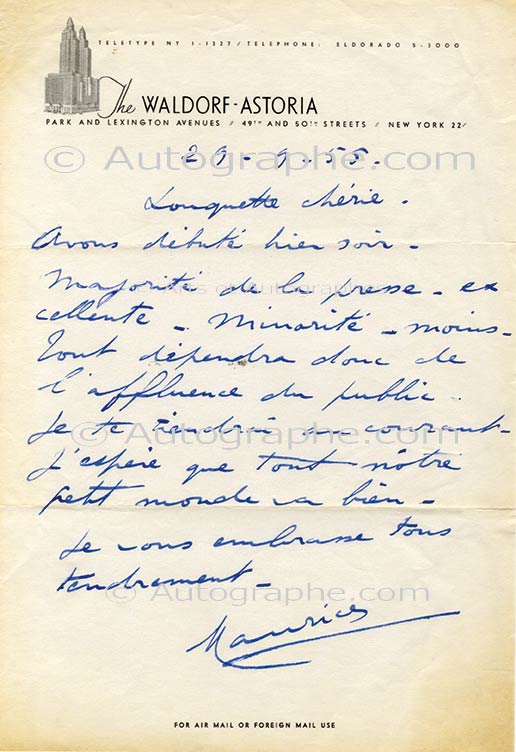 TELETYPE NY 1-1327 / TELEPHONE: ELDORADO 5-3000
The WALDORF-ASTORIA
PARK AND LEXINGTON AVENUES / 49TH AND 50TH STREETS / NEW YORK 22/
29-9-55.
© Autographe.com
Louquette chérie.
Avons débuté hier soir-
Arts et Autographes
Majorité de la presse - ex
cellente - Minorité - moins-
Tout dépendra donc de
l'affluence du public.
Je te tiendrai au courant-
© Autographe.com
J'espère que tout nôtre
petit monde va bien-
Je vous embrasse tous
tendrement-
© Autographe.com
Maurice
FOR AIR MAIL OR FOREIGN MAIL USE
© Autographe.com